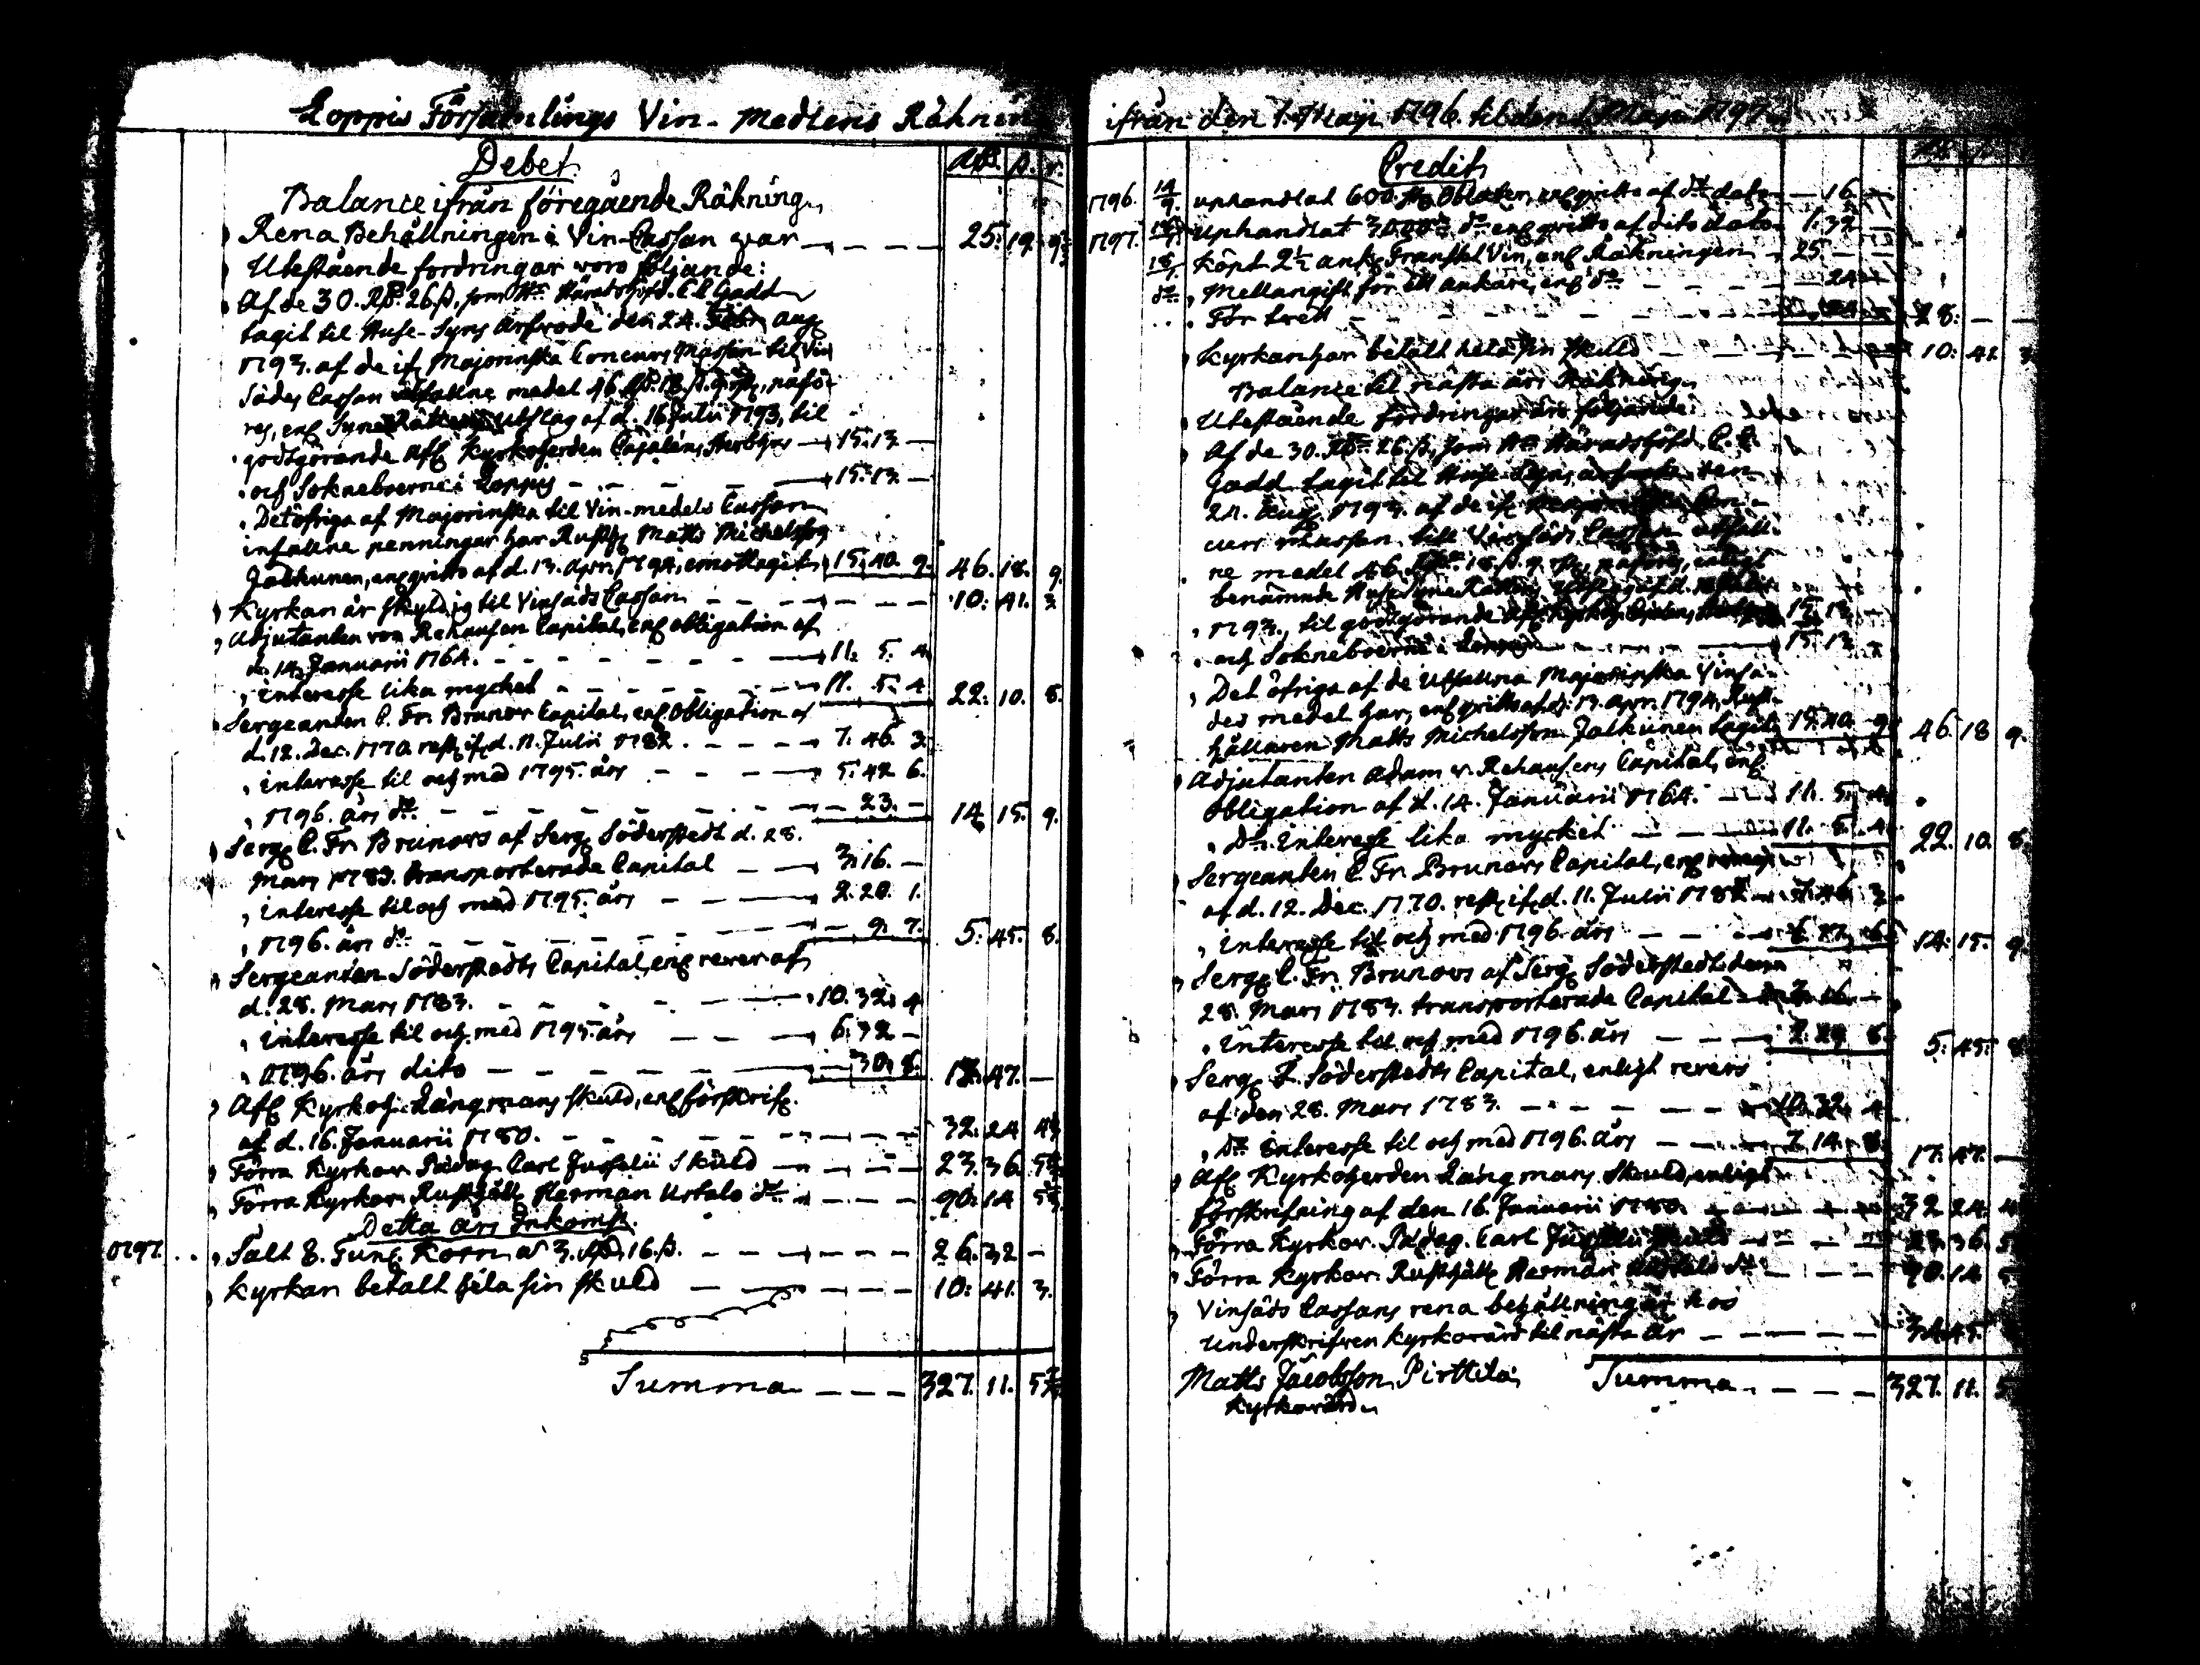 Loppis Församlings Vin-Medlens Räknin
Debet.
Rd. ß. r.
Balance ifrån föregående Räkning.
Rena Behållningen i Vin-Cassan war — — — 25. 19. 9
Utestående fordringar voro följande:
Af de 30. Rd. 26 ß. som Hr. Häradshöfd. C. C. Gadd
tagit til Huse-Syns arfvode den 24. Aug.
1793. af de if. Majorinska Concurs Massan til Vin
Sädes Cassan utfallne medel 46. Rd. 18. ß. 9. r., påfö-
res, enl. Syne Rättens utslag af d. 16 Julii 1793, til
godtgörande Afl. Kyrkoherden Cajalens Sterbhus — 15. 13. —
och Sokneboerne i Loppis — — — 15. 13. —
Det öfriga af Majorinska til Vin-medels Cassan
infallne penningar har Rusth. Matts Michelsson
Jalkunen, enl. qvitto af d. 13. Apr. 1794, emottagit 15. 40. 9. 46. 18. 9.
Kyrkan är skyldig til Vinsäds Cassan — — — 10. 41. 3
Adjutanten von Rehausen Capital, enl. obligation af
d. 14. Januarii 1764. — — — 11. 5. 4
interesse lika mycket — — — 11. 5. 4 22. 10. 8.
Sergeanten C. Fr. Brunor Capital, enl. Obligation af
d. 12. Dec. 1770. rest. if. d. 11. Julii 1782. — — — 7. 46. 3.
interesse til och med 1795. års — — — 5. 42. 6.
1796. års do. — — — — 23. — 14. 15. 9.
Serg. C. Fr. Brunors af Serg. Söderstedt d. 28.
Mars 1783. transporterade Capital — — 3. 16. —
interesse til och med 1795. års — — — 2. 20. 1.
1796. års do. — — — — 9. 7. 5. 45. 8.
Sergeanten Söderstedts Capital, enl. rever af
d. 28. Mars 1783. — — — 10. 32. 4
interesse til och med 1795. års — — — 6. 32. —
1796. års dito — — — — 30. 8. 17. 47. —
Afl. Kyrkoh. Långmans skuld, enl. förskrif.
af d. 16. Januarii 1780. — — — 32. 24. 4
Förra Kyrkov. Pädag. Carl Juselii Skuld — — — 23. 36. 5
Förra Kyrkov. Rusthåll. Herman Ustalo do. — — — 90. 14. 5
Detta års Inkomst.
1797. . . Sålt 8. Tun. Korn a 3. Rd. 16. ß. — — — 26. 32. —
Kyrkan betalt hela sin skuld — — — 10. 41. 3.
Summa — — — 327. 11. 5
ifrån den 1. Maji 1796. til den 1. Maji 1797.
Credit
1796. 14/9. uphandlat 600. st. Oblater, enl. qvitto af do. dato — 16. —
1797. uphandlat 3000 do. enl. qvitto af dito dato 1. 32. —
18/ Köpt 2½ ank. Franskt Vin, enl. Räkningen — 25. — —
do. Mellangift för ett ankare, enl. do. — — — 24. —
. . . För — — — 28. — —
Kyrkan har betalt hela sin skuld — — — 10. 41. 3
Balance til nästa års Räkning.
Utestående fordringar äro följande:
Af de 30. Rd. 26. ß. som Hr. Häradshöfd. C. C.
Gadd tagit til Huse-Syns arfvode den
24. Aug. 1793. af de if.
curs Massan till Vinsäds Cassan utfall-
ne medel 46. Rd. 18. ß. 9. r., påföres, enligt
benämnde Huse Syne Rättens
1793., til godtgörande Afl. Kyrkoh. 15. 13.
och Sokneboerne i Loppis — — — 15. 13. —
Det öfriga af de utfallna Majorinska Vinsä-
des medel har, enl. qvitto af d. 13. Apr. 1794, Rust-
hållaren Matts Michelsson Jalkunen tagit 15. 40. 9. 46. 18. 9.
Adjutanten Adam v. Rehausens Capital, enl.
Obligation af d. 14. Januarii 1764. — — 11. 5. 4.
Do. Interesse lika mycket — — — 11. 5. 4. 22. 10. 8.
Sergeanten C. Fr. Brunors Capital, enl. revers
af d. 12. Dec. 1770. rest. if. d. 11. Julii 1782 — 7. 46. 3
Interesse til och med 1796. års — — — 6. 17. 6. 14. 15. 9.
Serg. C. Fr. Brunors af Serg. Söderstedt den
28. Mars 1783. transporterade Capital — 3. 16. —
Interesse til och med 1796. års — — — 2. 29. 8. 5. 45. 8
Serg. F. Söderstedts Capital, enligt revers
af den 28. Mars 1783. — — — 10. 32. 4.
Do. interesse til och med 1796. års — — — 7. 14. 8. 17. 47. —
Afl. Kyrkoherden Långmans Skuld, enligt
förskrifning af den 16. Januarii 1780. — — — 32. 24. 4
Förra Kyrkov. Pädag. Carl Juselii Skuld — — — 23. 36. 5
Förra Kyrkov. Rusthåll. Herman Ustalo do. — — — 90. 14. 5
Vinsäds Cassans rena behållning är hos
underskrifven Kyrkovärd til nästa År — — — 34. 45.
Matts Jacobsson Pirttilä Summa. — — — 327. 11. 5
Kyrkovärd.